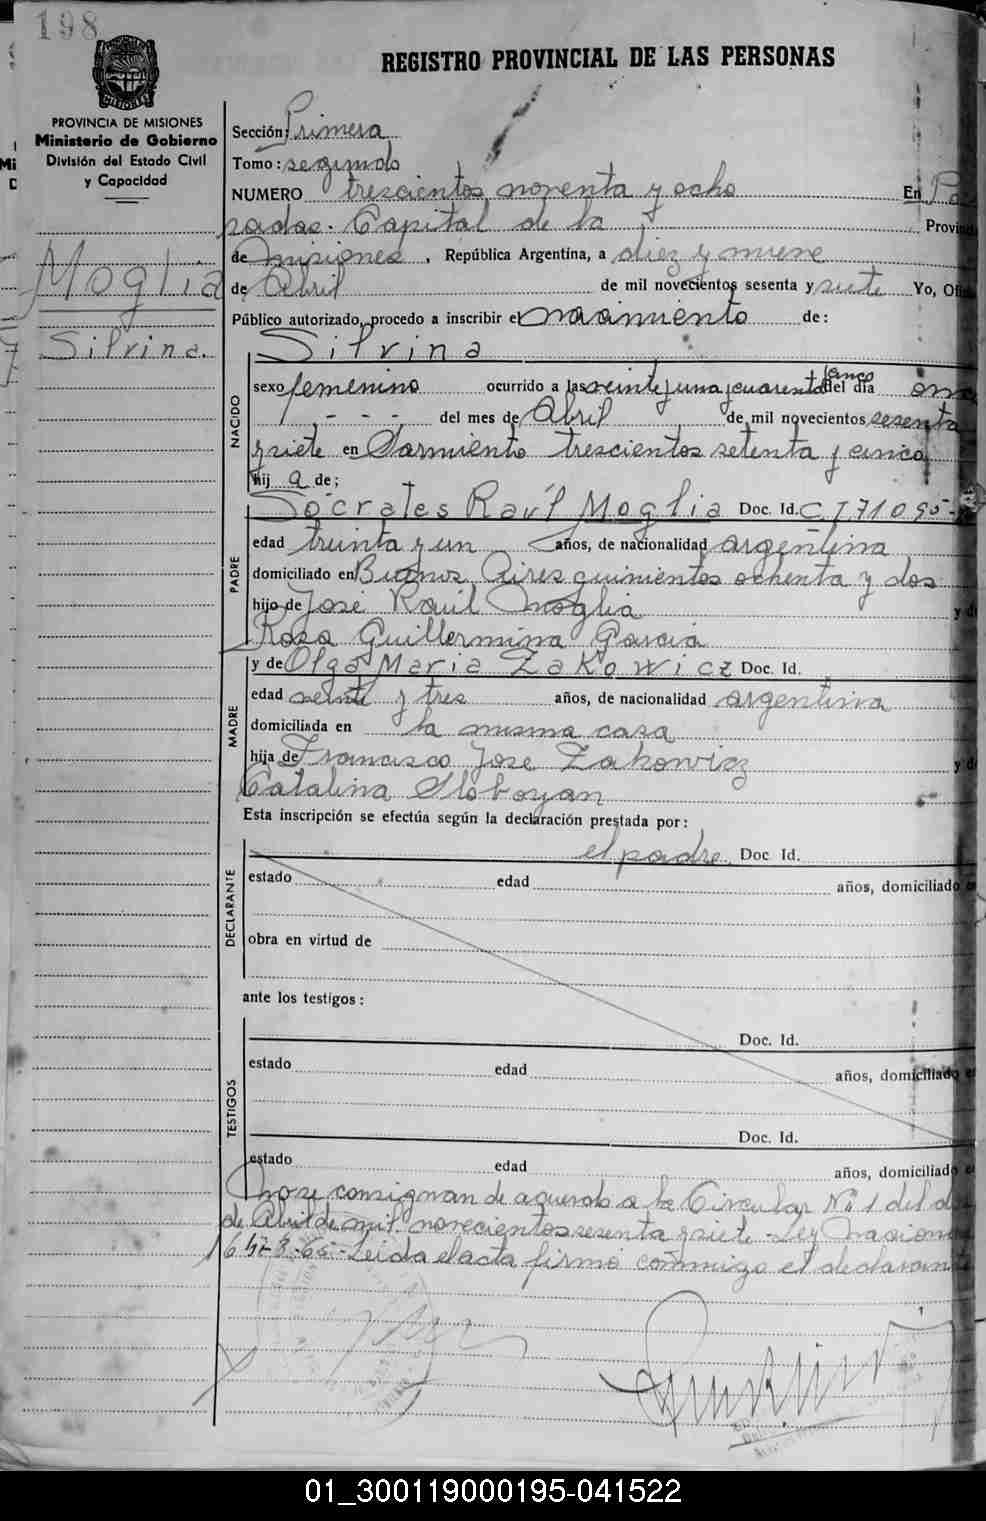 198
REGISTRO PROVINCIAL DE LAS PERSONAS
PROVINCIA DE MISIONES
Ministerio de Gobierno
División del Estado Civil
y Capacidad
Moglia
Silvina.
Sección: Primera
Tomo: segundo
NUMERO trescientos noventa y ocho En Po
sadas. Capital de la Provin
de Misiones, República Argentina, a diez y nueve
de Abril de mil novecientos sesenta y siete Yo, Ofi
Público autorizado, procedo a inscribir el nacimiento de:
NACIDO
Silvina
sexo femenino ocurrido a las veinte y una y cuarenta y cinco del día once
- - - del mes de Abril de mil novecientos sesenta
y siete en Sarmiento trescientos setenta y cinco
hij a de;
PADRE
Sócrates Raúl Moglia Doc. Id. C.I. 71095
edad treinta y un años, de nacionalidad argentina
domiciliado en Buenos Aires quinientos ochenta y dos
hijo de José Raúl Moglia y de
Rosa Guillermina Garcia
MADRE
y de Olga Maria Zakowicz Doc. Id.
edad veinte y tres años, de nacionalidad argentina
domiciliada en la misma casa
hija de Francisco José Zakowicz y de
Catalina Sloboyan
Esta inscripción se efectúa según la declaración prestada por:
DECLARANTE
el padre Doc. Id.
estado edad años, domiciliado en
obra en virtud de
ante los testigos:
TESTIGOS
Doc. Id.
estado edad años, domiciliado en
Doc. Id.
estado edad años, domiciliado
No se consignan de acuerdo a la Circular Nº 1 del
de Abril de mil novecientos sesenta y siete - Ley Nacional
Leida el acta firmó conmigo el declarante
01_300119000195-041522